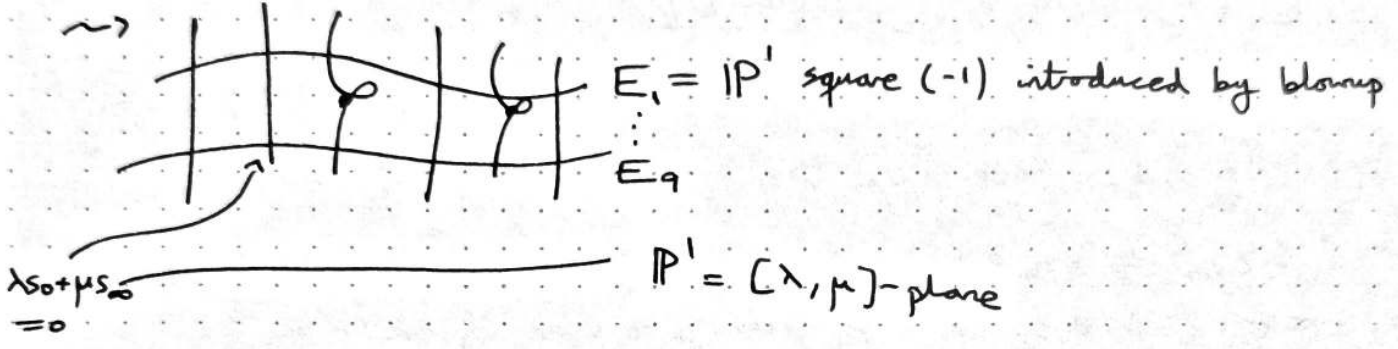 ⇝
E₁ = ℙ¹ square (-1) introduced by blowup
⋮
E₉
λs₀+μs∞
=0
ℙ¹ = [λ, μ]-plane